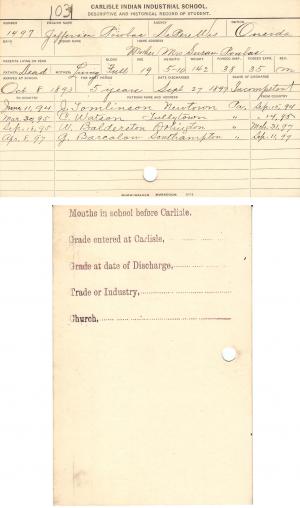 103
CARLISLE INDIAN INDUSTRIAL SCHOOL.
DESCRIPTIVE AND HISTORICAL RECORD OF STUDENT.
NUMBER ENGLISH NAME AGENCY NATION
1497 Jefferson De Pere Wis Oneida
INDIAN NAME HOME ADDRESS
Mother Mrs Susan
PARENTS LIVING OR DEAD BLOOD AGE HEIGHT WEIGHT FORCED INSP. FORCED EXPR. SEX
FATHER Dead MOTHER Living Full 19 5-10 142 38 35 m
ARRIVED AT SCHOOL FOR WHAT PERIOD DATE DISCHARGED CAUSE OF DISCHARGE
Oct 8 1893 5 years Sept 27 1897 Incompetent
TO COUNTRY PATRONS NAME AND ADDRESS FROM COUNTRY
June 11, 94 J. Tomlinson Newtown Pa. Sep. 15, 94
Mar. 30, 95 C. Watson Tullytown "
W. Balderston " Mch 31, 97
Apr. 8, 97 G. Barcalon Southampton " Sep. 11, 97
Months in school before Carlisle,
Grade entered at Carlisle,
Grade at date of Discharge,
Trade or Industry,
Church,